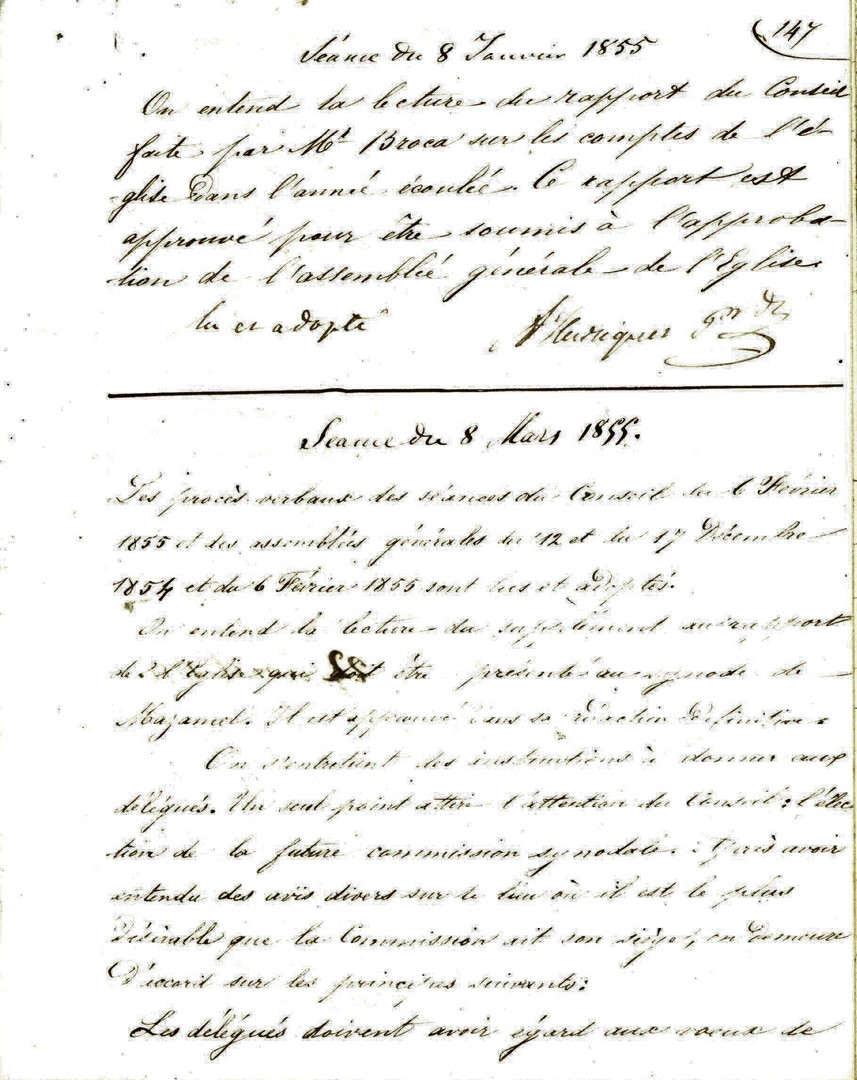 147
Séance du 8 Janvier 1855
On entend la lecture du rapport du Conseil
faite par Mr Broca sur les comptes de l'é-
-glise dans l'année écoulée. Ce rapport est
approuvé pour être soumis à l'approba-
-tion de l'assemblée générale de l'Eglise.
lu et adopté
Séance du 8 Mars 1855.
Les procès verbaux des séances du Conseil du 6 Février
1855 et des assemblées générales du 12 et du 17 Décembre
1854 et du 6 Février 1855 sont lus et adoptés.
On entend la lecture du supplément au rapport
de l'Eglise qui doit être présenté au synode de
Mazamet. Il est approuvé dans sa rédaction définitive.
On s'entretient des instructions à donner aux
délégués. Un seul point attire l'attention du Conseil: l'élec
tion de la future commission synodale. Après avoir
entendu des avis divers sur le lieu où il est le plus
désirable que la Commission ait son siége, on demeure
d'accord sur les principes suivants:
Les délégués doivent avoir égard aux voeux de